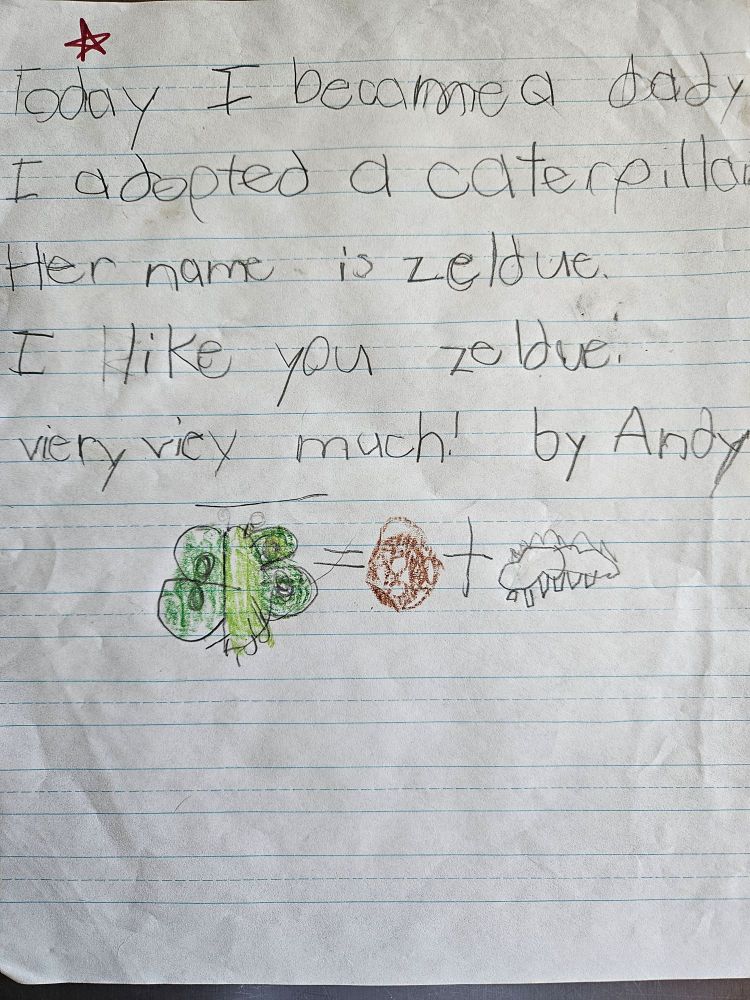 Today I becamme a dady
I adopted a caterpillar
Her name is zeldue.
I like you zeldue!
viery viey much! by Andy
= +